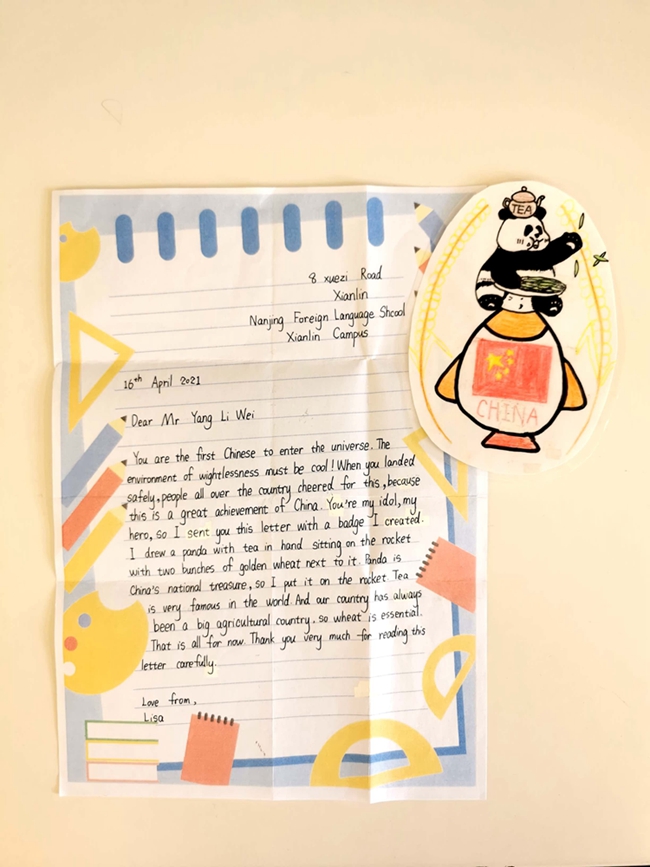 8 xuezi Road
Xianlin
Nanjing Foreign Language Shcool
Xianlin Campus
16th April 2021
Dear Mr Yang Li Wei
You are the first Chinese to enter the universe. The
environment of wightlessness must be cool! When you landed
safely, people all over the country cheered for this, because
this is a great achievement of China. You're my idol, my
hero, so I sent you this letter with a badge I created.
I drew a panda with tea in hand sitting on the rocket
with two bunches of golden wheat next to it. Panda is
China's national treasure, so I put it on the rocket Tea
is very famous in the world And our country has always
been a big agricultural country, so wheat is essential.
That is all for now. Thank you very much for reading this
letter carefully.
Love from,
Lisa
TEA
CHINA